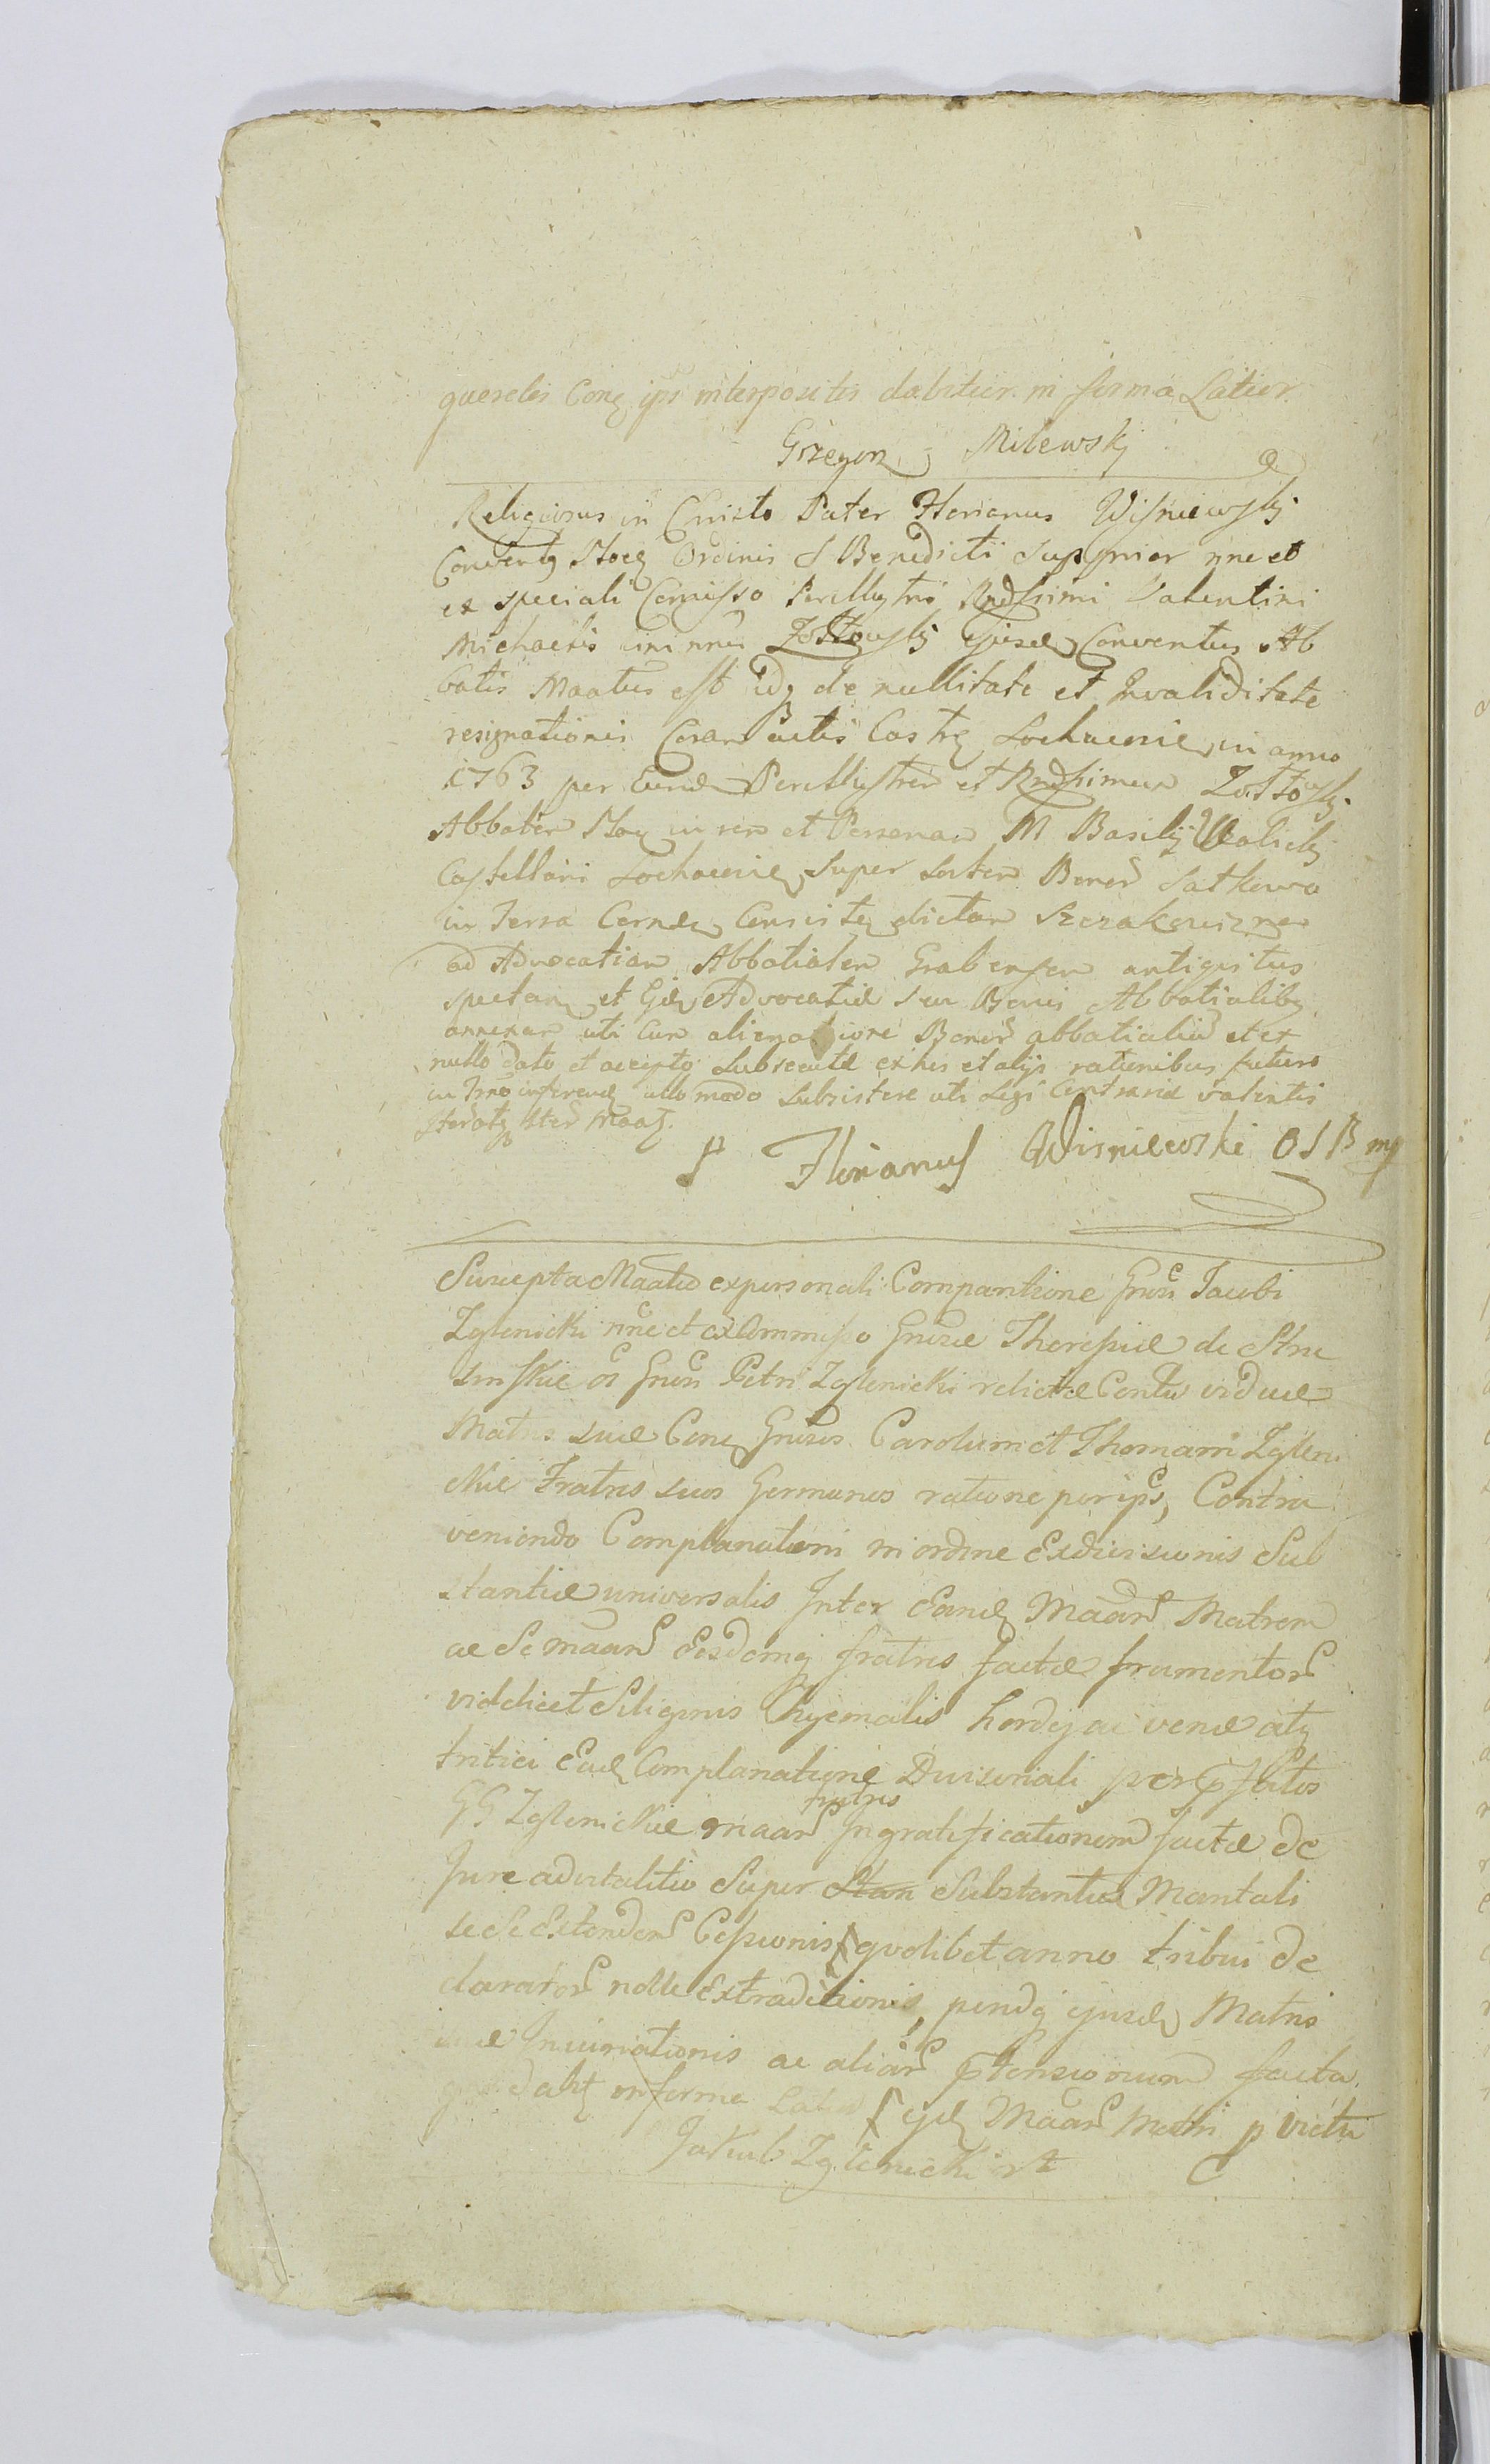 querelis Conq ips interpositis dabitur in forma Latior.
Grzegorz Milewskj
Religiosus in Christo Pater Florianus Wisniewskj
Conventq Ordinis S Benedicti Supprior nne et
ex speciali Comisso Perillustris Rndssimi Valentini
Michaelis Zołtowskj Ejusd Conventus Ab
batis Maatus est idq de nullitate et Invaliditate
resignationis Coram actis Castrq Sochacvie in anno
1763 per Eund Perillustrem et Rndssimum Zołtowskj
Abbatem in rem et Personam M Basilij Walickj
Castellani Sochacvie Super Sortem Bonor Satkowo
in Terra Cernen Consistq dictam
ad Advocatiam Abbatialem antiquitus
spectan et Advocatiæ seu Bonis Abbatialibq
annexam uti cum alienatione Bonor abbatialiu et ex
nullo dato et accepto Subsecutæ ex his et alijs rationibus futuro
in inferend ullo modo Subsistere uti Legi Contrariæ valentis
Iteratq Iter Maat.
P Florianus Wisniewski OSB mp
Suscepta Maatio ex personali Comparitione Gnsi Jacobi
Zglenicki nne et ex Commisso Gnosæ Theresiæ de Stru
sinskie os Gnsi Petri Zglenicki relictæ Contu viduæ
Matris suæ Conq Gnsos Carolum et Thomam Zgleni
ckie Fratres suos Germanos ratione per ipsos, Contra
veniendo Complanationi in ordine Exdivisionis Sub
stantiæ universalis Inter Eand Maan Matrem
ac Se maan Eosdemq fratres factæ frumentor
videlicet Siliginis hyemalis hordej avenæ atq
tritici Ead Complanatione Divisoriali per pfatos
GG Zglenickie maan fratres Ingratificationem factæ de
Jure advitalitio Super Stan Substantiæ Maritali
se Se Extenden Cessionis quolibet anno tribui de
clarator nolle Extraditionis, pendq ejusd Matris
suæ Injuriationis ac aliar ptensionum facta.
dabt in forma Latior ejd Maan Matri p victu
Jakub Zglenicki